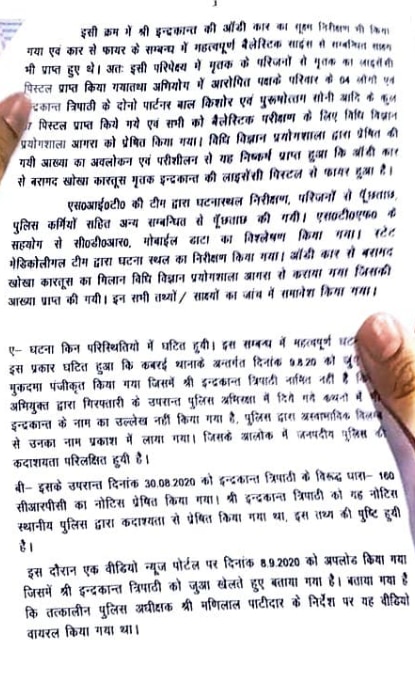 3
इसी क्रम में श्री इन्द्रकान्त की ऑडी कार का सूक्ष्म निरीक्षण भी किया
गया एवं कार से फायर के सम्बन्ध में महत्वपूर्ण बैलेस्टिक साइंस से सम्बन्धित साक्ष्य
भी प्राप्त हुए थे। अतः इसी परिपेक्ष्य में मृतक के परिजनों से मृतक का लाइसेंसी
पिस्टल प्राप्त किया गयातथा अभियोग में आरोपित पक्षके परिवार के 04 लोगों एवं
न्द्रकान्त त्रिपाठी के दोनो पार्टनर बाल किशोर एवं पुरूषोत्तम सोनी आदि के कुल
पिस्टल प्राप्त किये गये एवं सभी को बैलेस्टिक परीक्षण के लिए विधि विज्ञान
प्रयोगशाला आगरा को प्रेषित किया गया। विधि विज्ञान प्रयोगशाला द्वारा प्रेषित की
गयी आख्या का अवलोकन एवं परीशीलन से यह निष्कर्ष प्राप्त हुआ कि ऑडी कार
से बरामद खोखा कारतूस मृतक इन्द्रकान्त की लाइसेंसी पिस्टल से फायर हुआ है।
एस०आई०टी० की टीम द्वारा घटनास्थल निरीक्षण, परिजनों से पूँछताछ,
पुलिस कर्मियों सहित अन्य सम्बन्धित से पूँछताछ की गयी। एस०टी०एफ० के
सहयोग से सी०डी०आर०, मोबाईल डाटा का विश्लेषण किया गया। स्टेट
मेडिकोलीगल टीम द्वारा घटना स्थल का निरीक्षण किया गया। ऑडी कार से बरामद
खोखा कारतूस का मिलान विधि विज्ञान प्रयोगशाला आगरा से कराया गया जिसकी
आख्या प्राप्त की गयी। इन सभी तथ्यों / साक्ष्यों का जांच में समावेश किया गया।
ए– घटना किन परिस्थितियों में घटित हुयी। इस सम्बन्ध में महत्वपूर्ण घट
इस प्रकार घटित हुआ कि कबरई थानाके अन्तर्गत दिनांक 9.8.20 को जु
मुकदमा पंजीकृत किया गया जिसमें श्री इन्द्रकान्त त्रिपाठी नामित नहीं है
अभियुक्त द्वारा गिरफ्तारी के उपरान्त पुलिस अभिरक्षा में दिये गये कथनो में भी
इन्द्रकान्त के नाम का उल्लेख नहीं किया गया है, पुलिस द्वारा अस्वाभाविक विलम्ब
से उनका नाम प्रकाश में लाया गया। जिसके आलोक में जनपदीय पुलिस की
कदाशयता परिलक्षित हुयी है।
बी– इसके उपरान्त दिनांक 30.08.2020 को इन्द्रकान्त त्रिपाठी के विरूद्ध धारा– 160
सीआरपीसी का नोटिस प्रेषित किया गया। श्री इन्द्रकान्त त्रिपाठी को यह नोटिस
स्थानीय पुलिस द्वारा कदाश्यता से प्रेषित किया गया था, इस तथ्य की पुष्टि हुयी
है।
इस दौरान एक वीडियो न्यूज पोर्टल पर दिनांक 8.9.2020 को अपलोड किया गया
जिसमें श्री इन्द्रकान्त त्रिपाठी को जुआ खेलते हुए बताया गया है। बताया गया है
कि तत्कालीन पुलिस अधीक्षक श्री मणिलाल पाटीदार के निर्देश पर यह वीडियो
वायरल किया गया था।